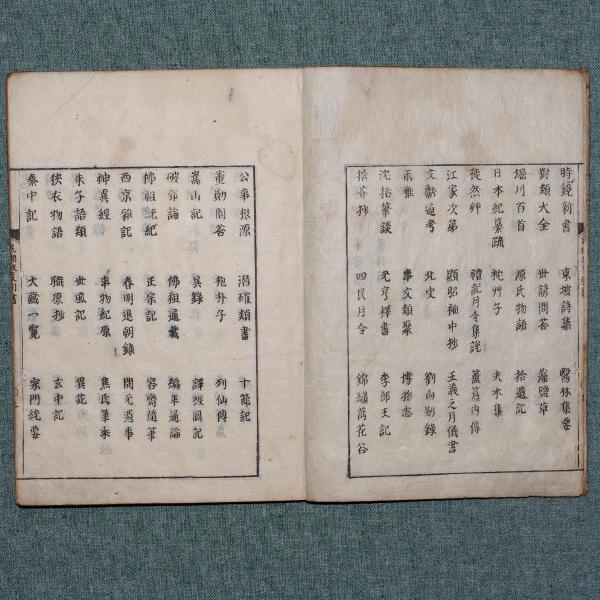 時鏡新書 東坡詩集 醫林集要
對類大全 世諺問答 藻鹽草
堀川百首 源氏物語 拾遺記
日本紀纂疏 枕艸子 夫木集
徒然艸 禮記月令集說 簠簋内傳
江家次第 顯昭袖中抄 王羲之月儀書
文獻通考 北史 劉向別錄
爾雅 事文類聚 博物志
沈括筆談 元亨釋書 李部王記
拾芥抄 四民月令 錦繡萬花谷
公事根源 潛確類書 十節記
董勛問答 抱朴子 列仙傳
嵩山記 吳錄
破邪論 佛祖通載 編年通論
佛祖統紀 正宗記 容齋隨筆
西京雜記 春明退朝錄 開元遺事
神異經 事物紀原 焦氏筆乘
朱子語類 世風記 異苑
狹衣物語 職原抄 玄中記
秦中記 大藏一覽 宗門統要